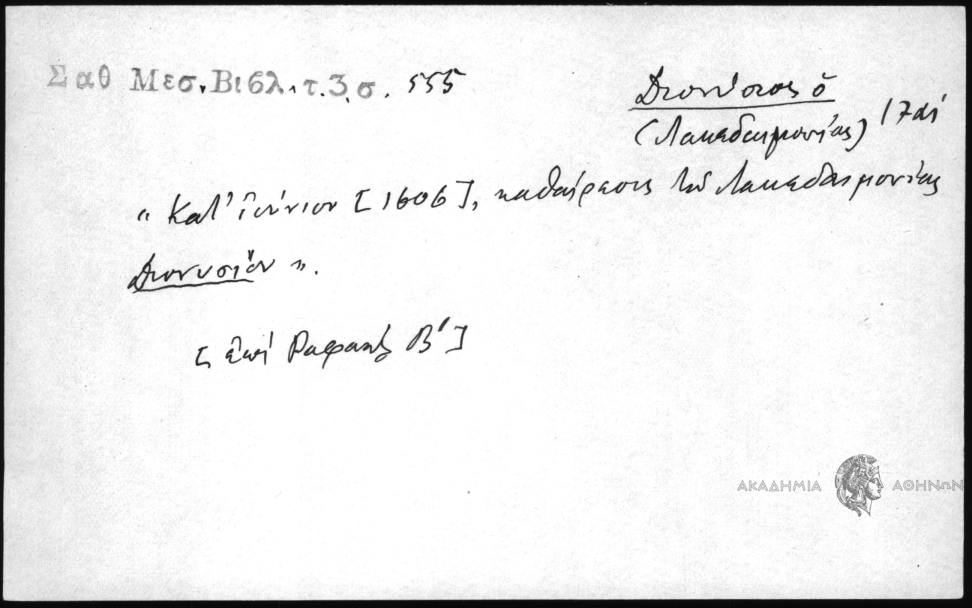 Σαθ Μεσ. Βιβλ. τ. 3. σ. 555
Διονύσιος ὁ
(Λακεδαιμονίας) 17αι
« Κατ' Ἰούνιον [1606], καθαίρεσις τοῦ Λακεδαιμονίας
Διονυσίου ».
[ἐπὶ Ραφαὴλ Β']
ΑΚΑΔΗΜΙΑ ΑΘΗΝΩΝ